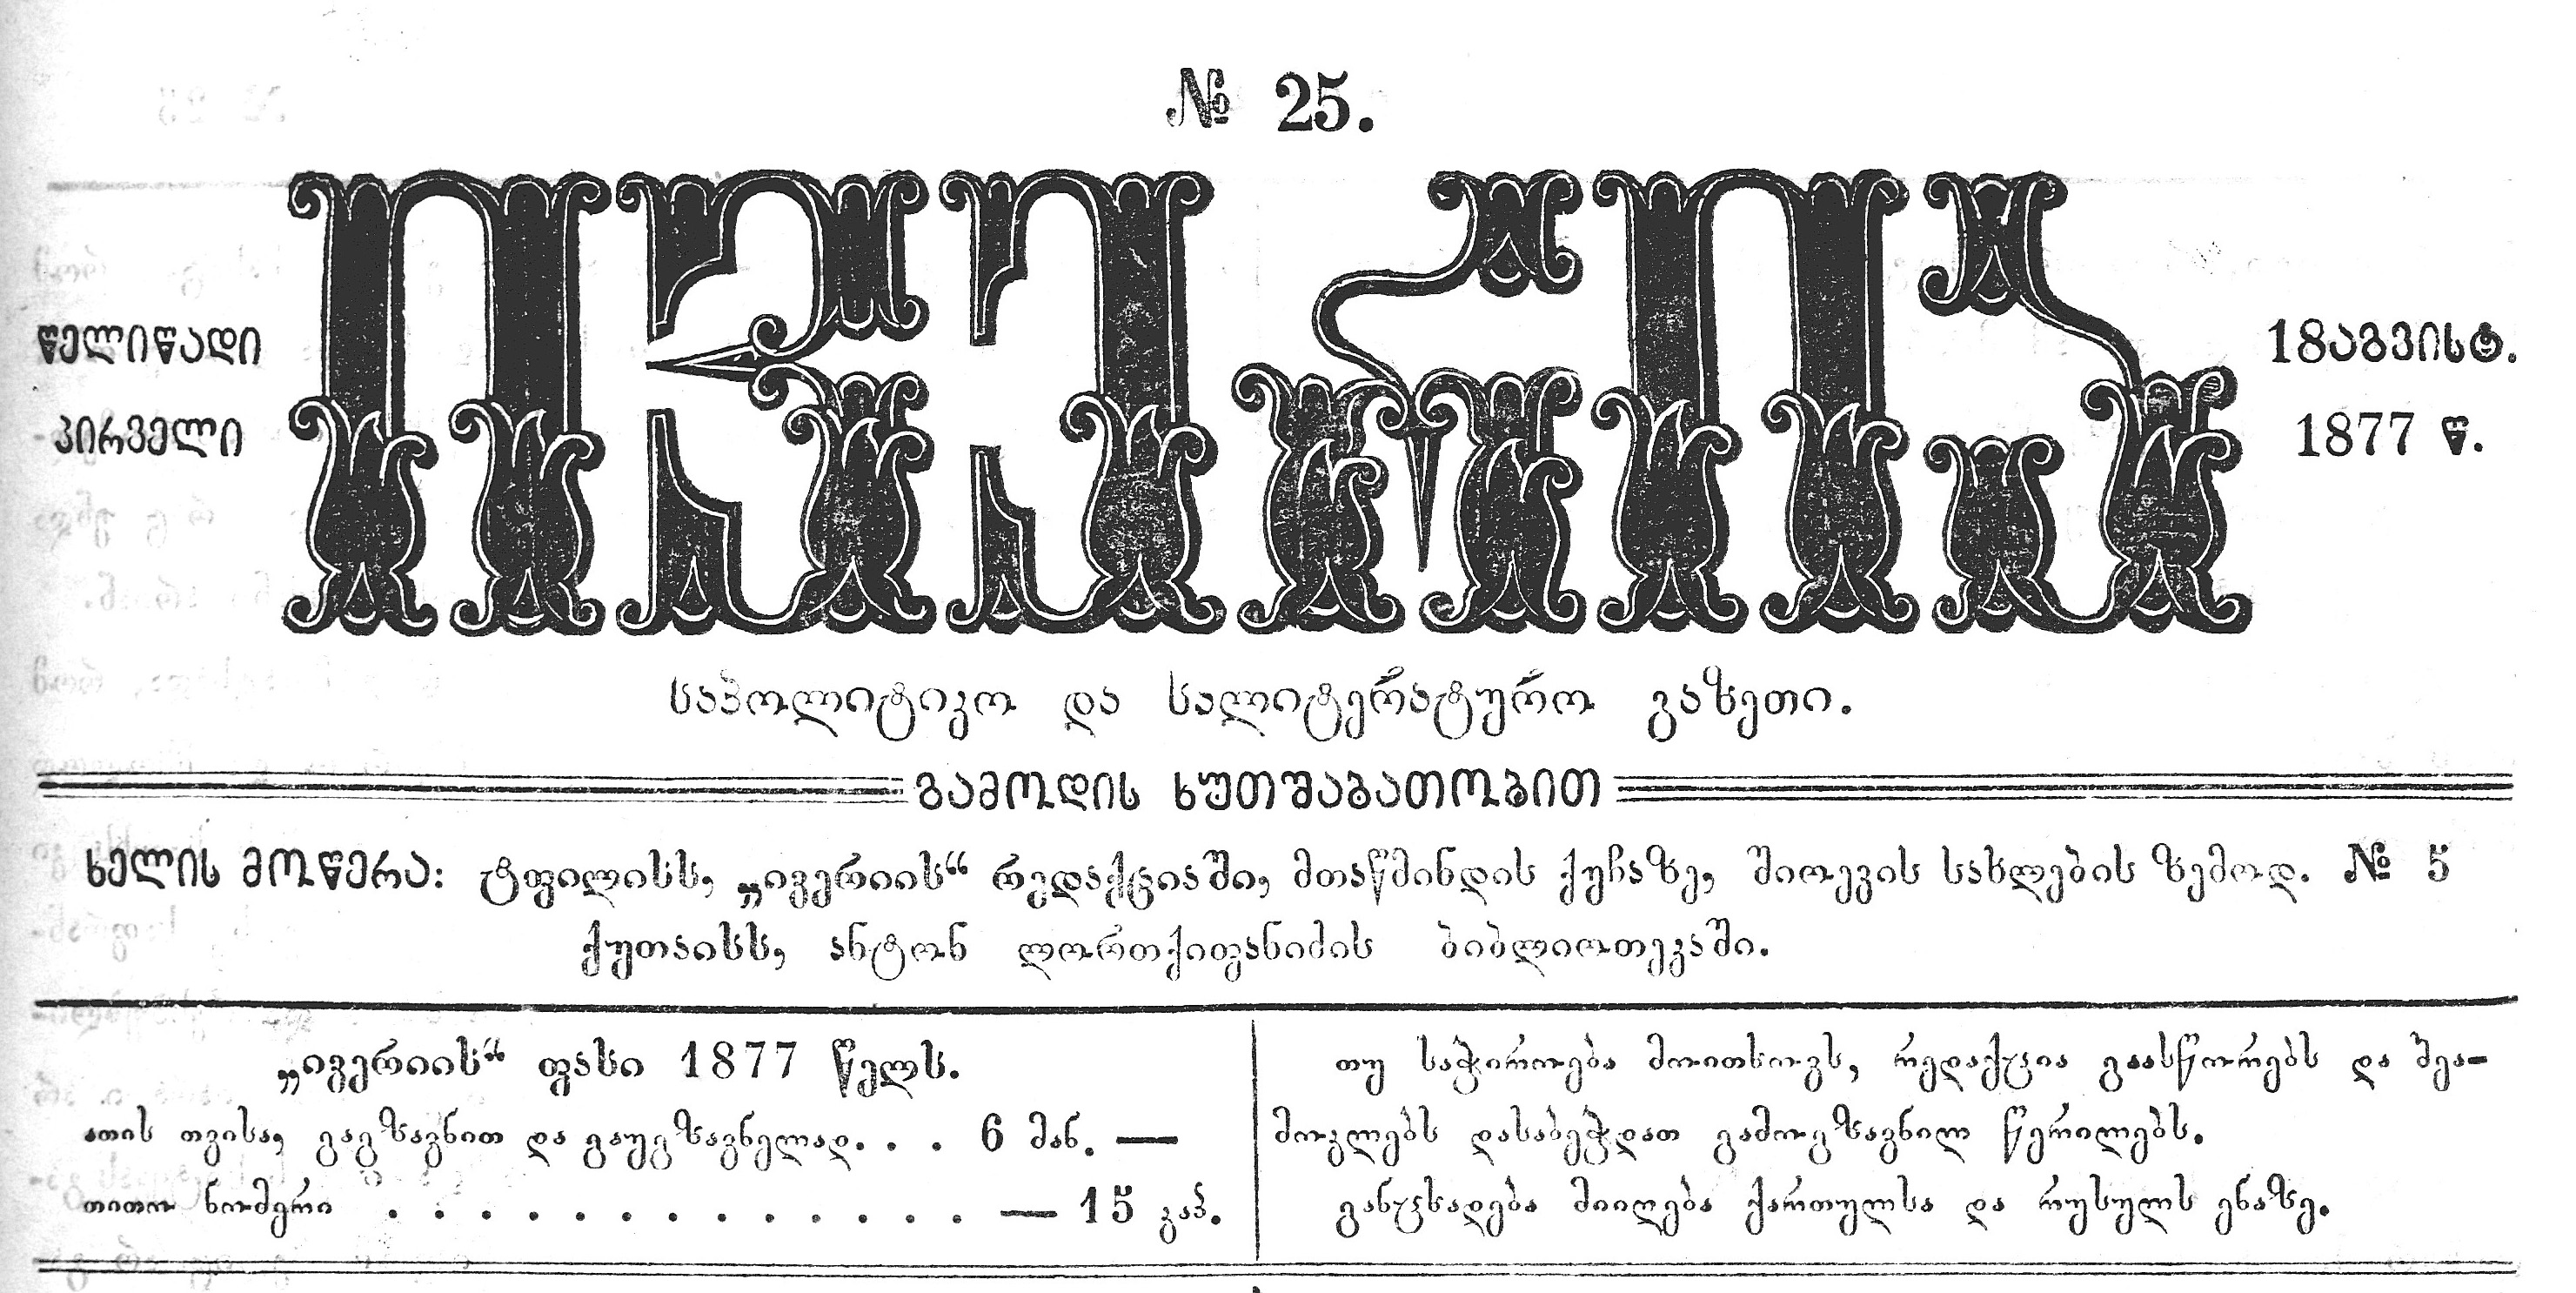 № 25.
ივერია
წელიწადი
პირველი
18 აგვისტ.
1877 წ.
საპოლიტიკო და სალიტერატურო გაზეთი.
გამოდის ხუთშაბათობით
ხელის მოწერა: ტფილისს, „ივერიის“ რედაქციაში, მთაწმინდის ქუჩაზე, შიოევის სახლების ზემოდ. № 5
ქუთაისს, ანტონ ლორთქიფანიძის ბიბლიოთეკაში.
„ივერიის“ ფასი 1877 წელს.
ათის თვისა, გაგზავნით და გაუგზავნელად. . . 6 მან. —
თითო ნომერი . . . . . . . . . . . . . — 15 კაპ.
თუ საჭიროება მოითხოვს, რედაქცია გაასწორებს და შეა-
მოკლებს დასაბეჭდათ გამოგზავნილ წერილებს.
განცხადება მიიღება ქართულსა და რუსულს ენაზე.